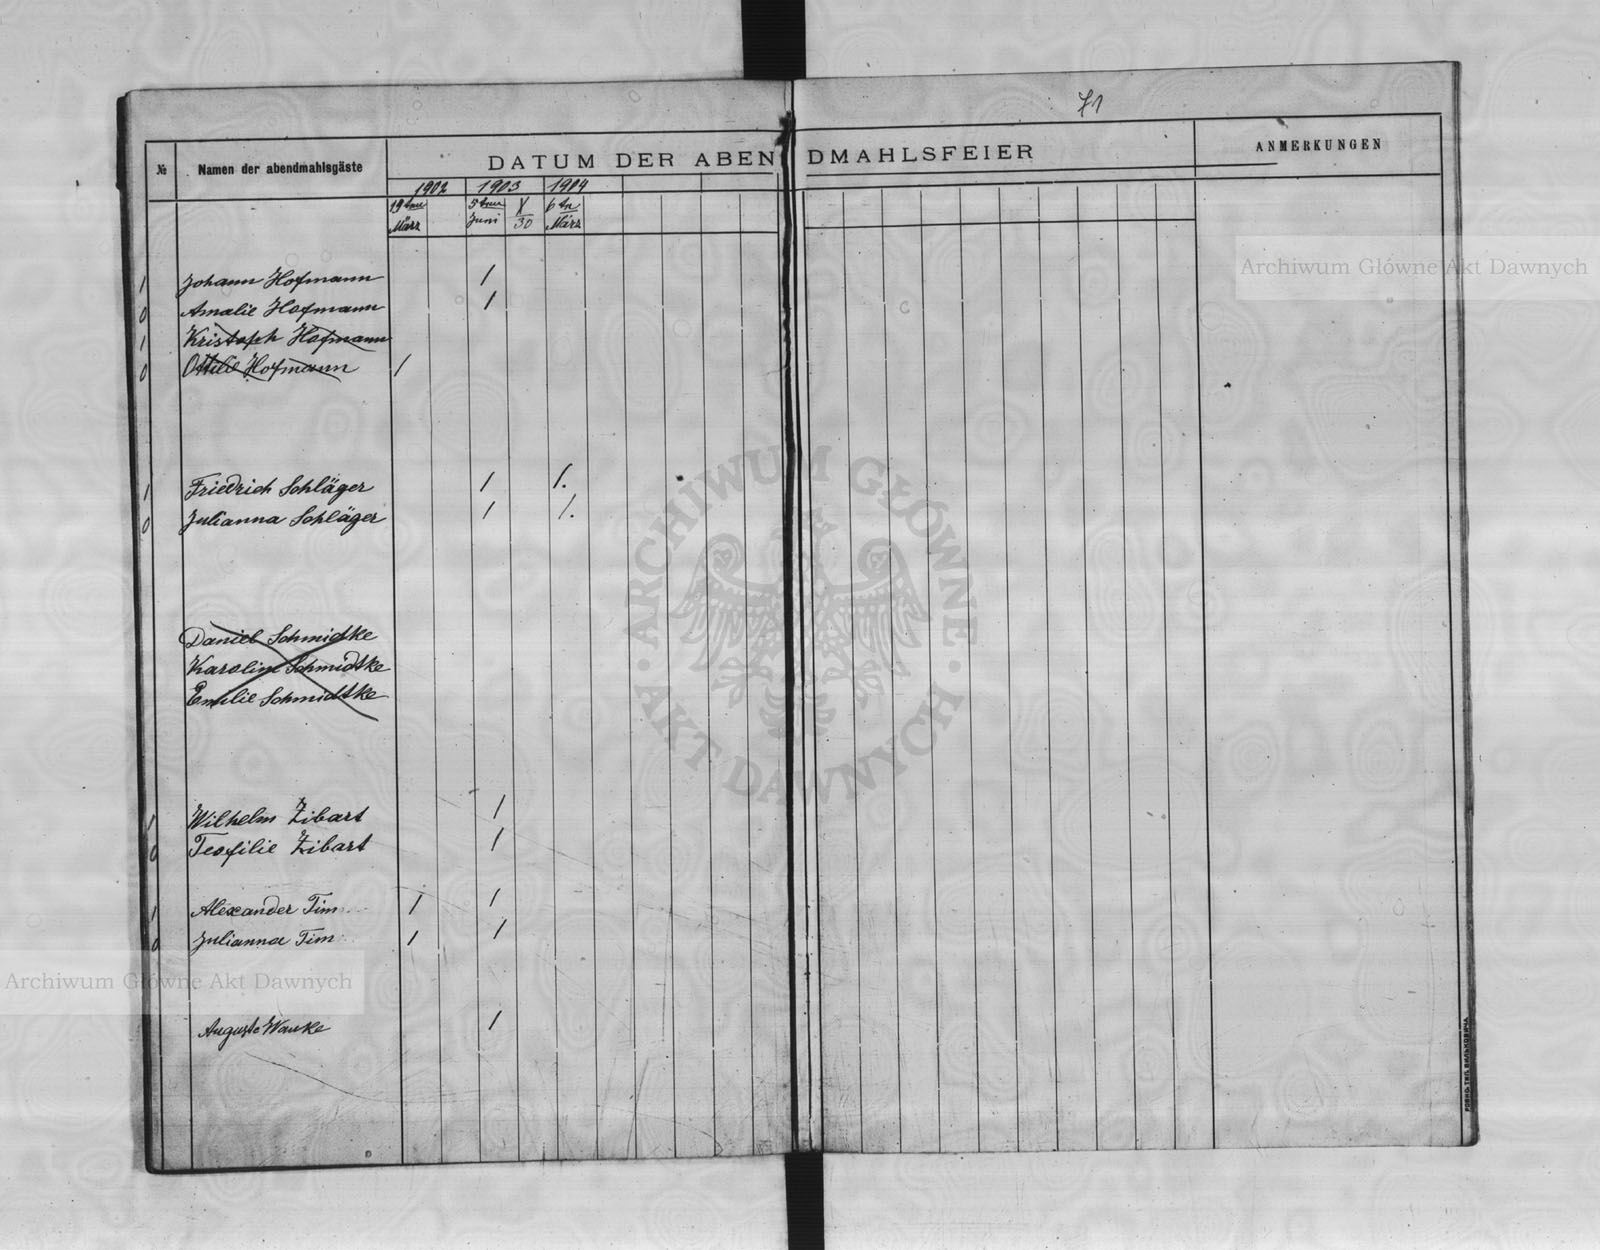 71
№ Namen der abendmahlsgäste DATUM DER ABENDMAHLSFEIER ANMERKUNGEN
1902 1903 1904
19ten März 5ten Juni X/30 6ten März
1 Johann Hofmann 1
0 Amalie Hofmann 1
1 Kristoph Hofmann
0 Ottilie Hofmann 1
1 Friedrich Schläger 1 1.
0 Julianna Schläger 1 1.
Daniel Schmidtke
Karoline Schmidtke
Emilie Schmidtke
1 Wilhelm Zibart 1
0 Teofilie Zibart 1
1 Alexander Tim 1 1
0 Julianna Tim 1 1
Auguste Wanke 1
Archiwum Główne Akt Dawnych
Archiwum Główne Akt Dawnych
ARCHIWUM GŁÓWNE · AKT DAWNYCH ·
РОВНО. ТИП. ВИЛЬКОВИЧА